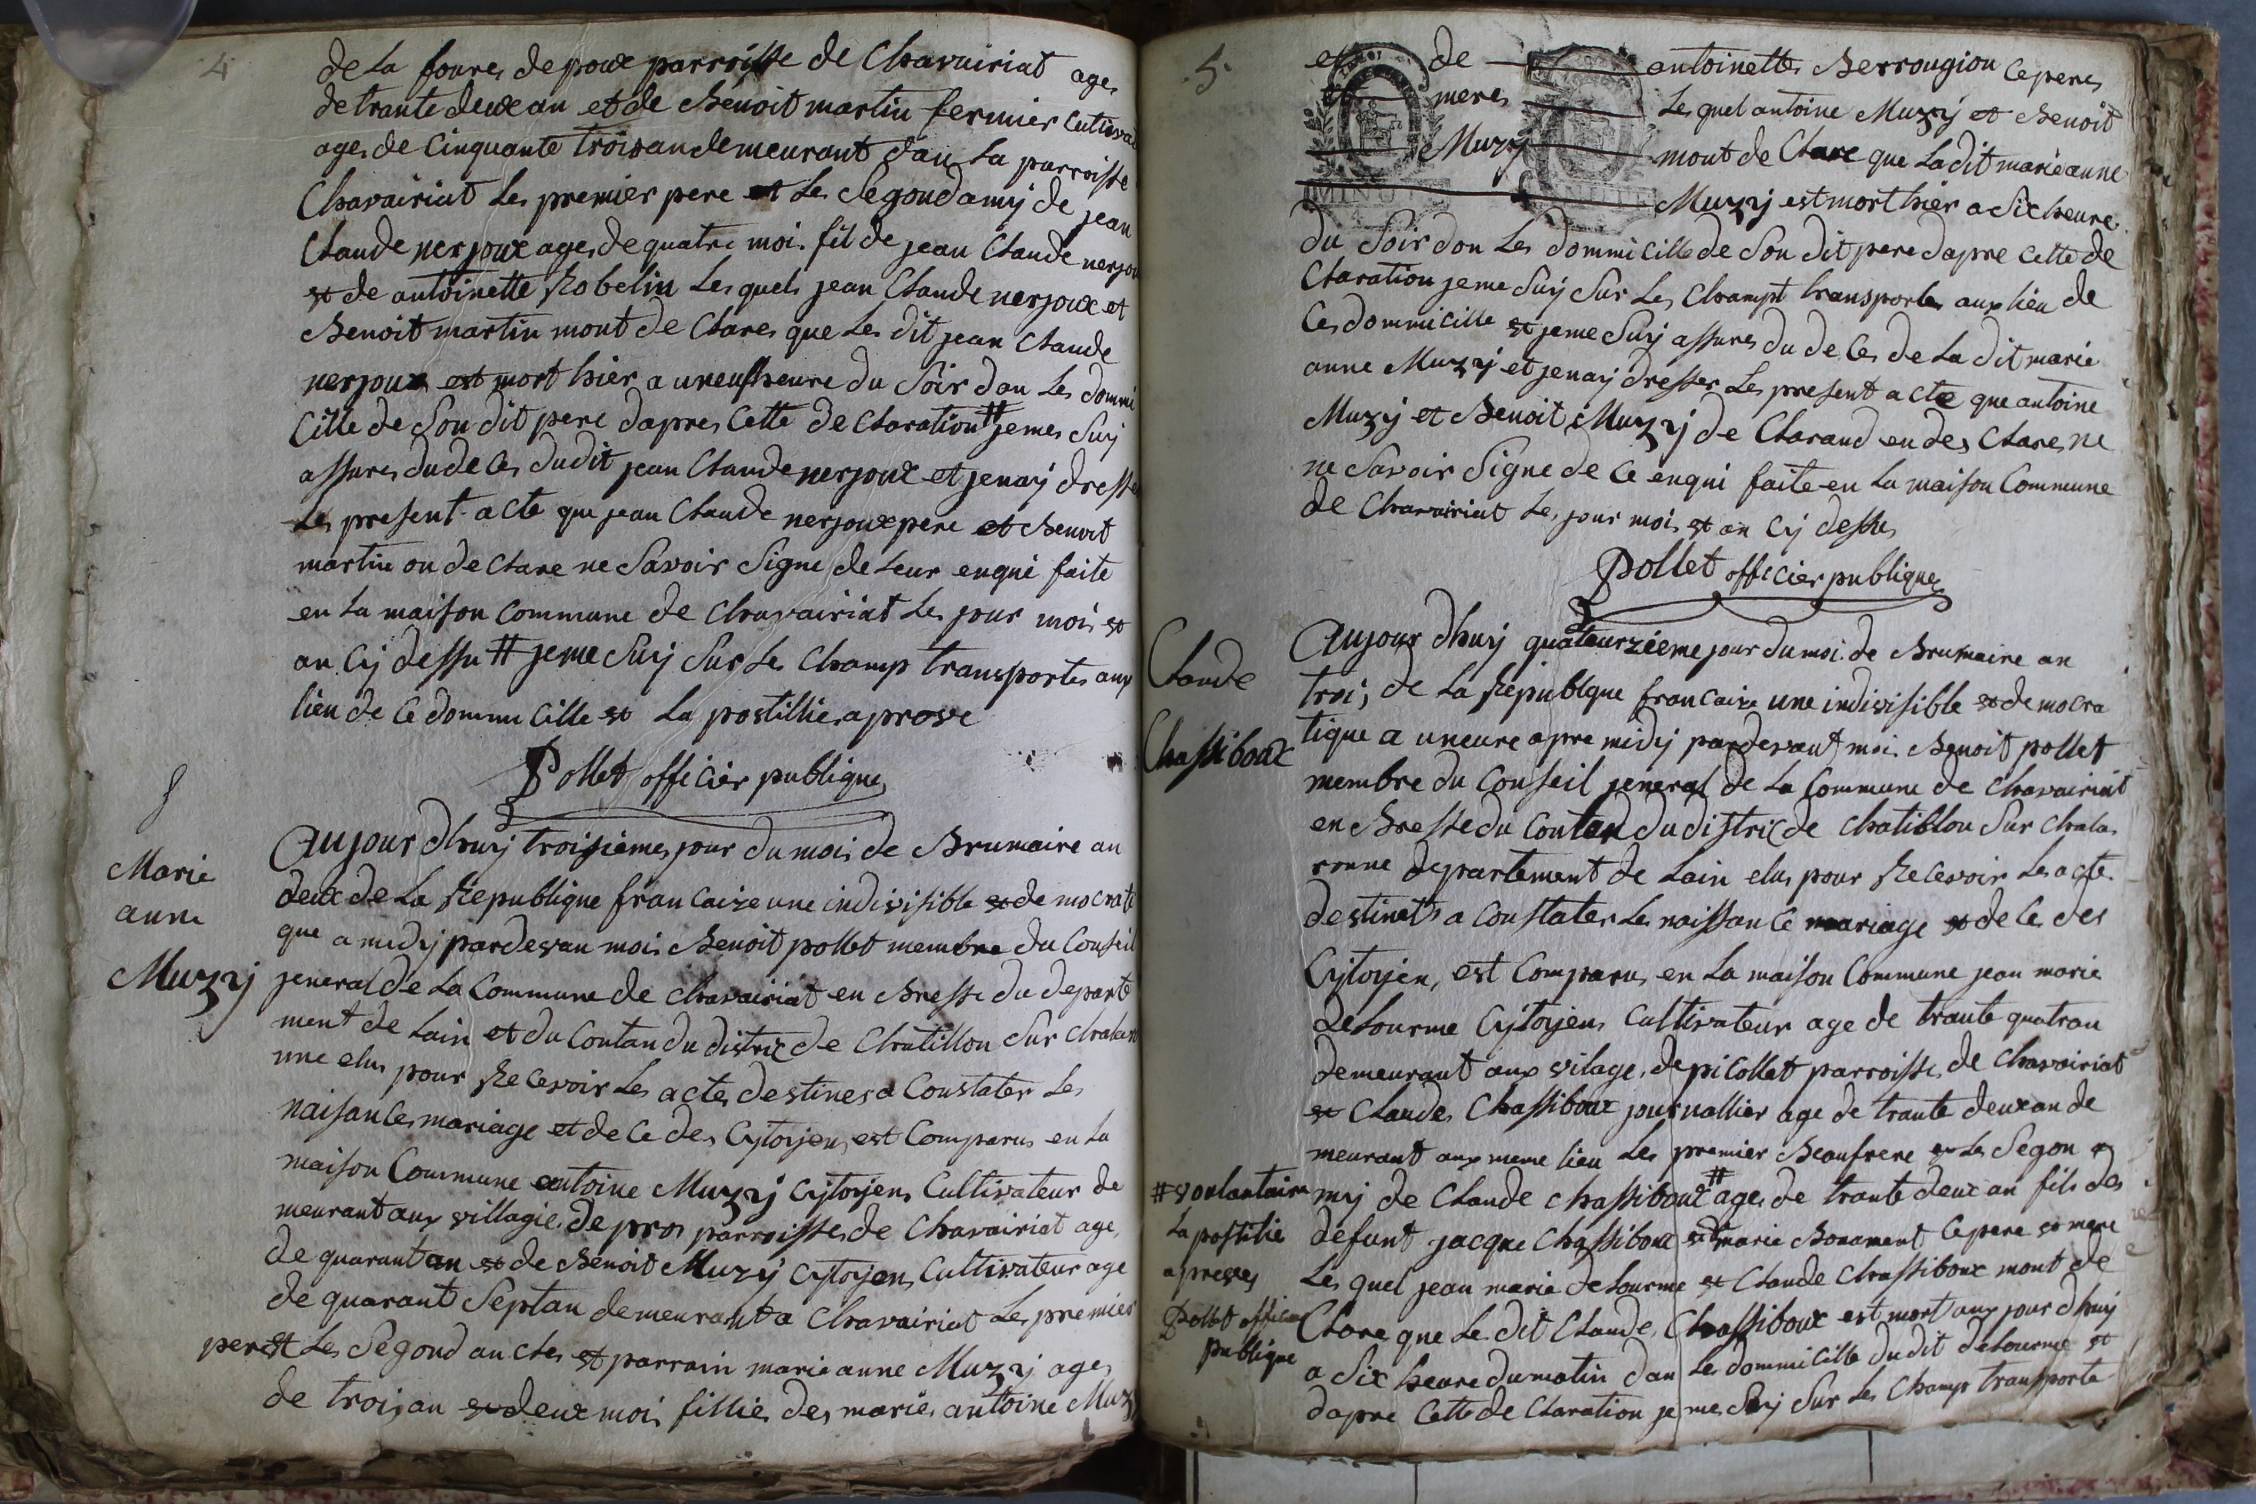 4
de La foures de poux parroisse de Chavairiat age
de trante deux an et de Benoit martin fermier Cultivat
ages de Cinquante trois an demeurant dan La parroisse
Chavairiat Les premier pere et Les Segond amij de jean
Claude nerjoux ages de quatre moi fil de jean Claude nerjou
et de antoinette Robelin Les quels jean Claude nerjoux et
Benoit martin mont de Clares que Les dit jean Claude
nerjoux est mort hier a uneufheure du Soir dan Les dommi
Cille de Son dit pere dapres Cette de Claration # jemes Suij
assures dude Ces dudit jean Claude nerjoux et jenaij dresse
Les present acte que jean Claude nerjoux pere et Benoit
martin on de Clare ne Savoir Signe de Leur enqui faite
en La maison Commune de Chavairiat Les jour moi et
an Cij dessu # jeme Suij Sur Le Champ transportes aux
lieu de Ce dommi Cille et La postillie aprove
Pollet officier publique
Marie
anne
Muzzij
Aujour dhuij troisiemes jour du mois de Brumaire an
deux de La Republique francaize une indivisible et de mocrati
que a midij pardevan moi Benoit pollet membre du Conseil
jeneral de La Commune de Chavairiat en Bresse du departe
ment de Lain et du Contan du distric de Chatillon Sur Chalaro
nne elus pour Recevoir Les actes destines a Constater Les
naisances mariage et de Ce des Cytoijens est Comparus en La
maison Commune antoine Muzzij Cijtoijens Cultivateur de
meurant aux villagies de pros parroisses de Chavairiat age
de quarant an et de Benoit Muzij Cijtoijens Cultivateur age
de quarant Septan demeurant a Chavairiat Les premier
pere et Les Segond ancles et parrain marie anne Muzzij ages
de trois an et deux moi fillies des maries antoine Muzz
5
et de antoinettes Berrougion Ce peres
et meres Les quel antoine Muzzij et Benoit
Muzij mont de Clare que La dit marie anne
Muzzij est mort hier a Six heures
du Soir don Les dommi Cille de Son dit pere dapre Cette de
Claration jeme Suij Sur Les Champt transportes aux lieu de
Ces dommi Cille et jeme Suij assures du de Ces de La dit marie
anne Muzzij et jenaij dresser Les present acte que antoine
Muzij et Benoit Muzzij de Clarand en des Clares ne
ne Savoir Signe de Ce enqui faite en La maison Commune
de Chavairiat Les jour moi et an Cij dessus
Pollet officier publique
Claude
Chassiboux
Aujour dhuij quateurzieme jour du moi de Brumaire an
troi; de La Republque francaize une indivisible et de mocra
tique a uneure apre midij pardevant moi Benoit pollet
membre du Conseil jeneral de La Commune de Chavairiat
en Bresse du Contan du distric de Chatillon Sur Chala
ronne departement de Lain elus pour Recevoir Les acte
destinets a Constater Les naissance mariage et de Ce des
Cijtoijen, est Comparus en La maison Commune jean marie
deLourme Cijtoijens Cultivateur age de trante quatran
demeurant aux vilage de picollet parroisse de Chavairiat
et Claudes Chassiboux journallier age de trante deux an de
meurant aux meme lieu Les premier Beaufrere et Le Segon a
mij de Claude Chassiboux # ages de trante deux an fils des
defunt jacque Chassiboux et marie Bonament Ce pere et mere
Les quel jean marie deLourme et Claude Chassiboux mont de
Clare que Le dit Claude Chassiboux est mort aux jour dhuij
a Six heure du matin dan Les dommi Cille du dit deLourme et
dapre Cette de Claration jemes Suij Sur Les Champ transporte
# voulantaire
La postilie
apreves
Pollet officier
publique